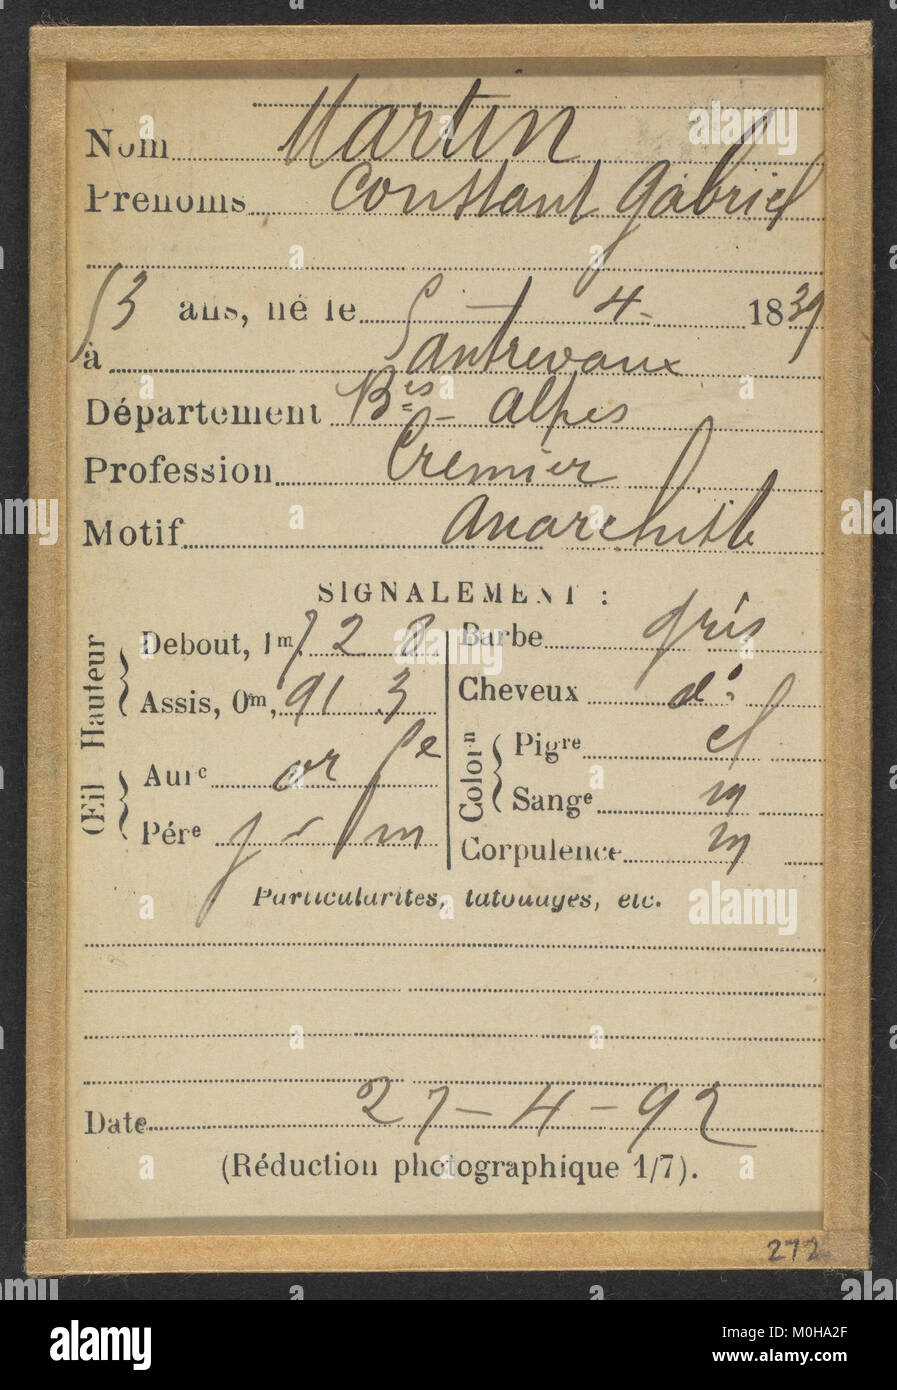 Nom Martin
Prénoms Constant Gabriel
53 ans, né le 4 - 1839
à Santrevaux
Département Bses - Alpes
Profession Crémier
Motif Anarchiste
SIGNALEMENT :
Hauteur
Debout, 1m, 72 8
Assis, 0m, 91 3
Œil
Aurc or fe
Pére j - m
Barbe gris
Cheveux do
Colorn
Pigre el
Sange m
Corpulence m
Particularités, tatouages, etc.
Date 27-4-92
(Réduction photographique 1/7).
272
alamy
Image ID: M0HA2F
www.alamy.com